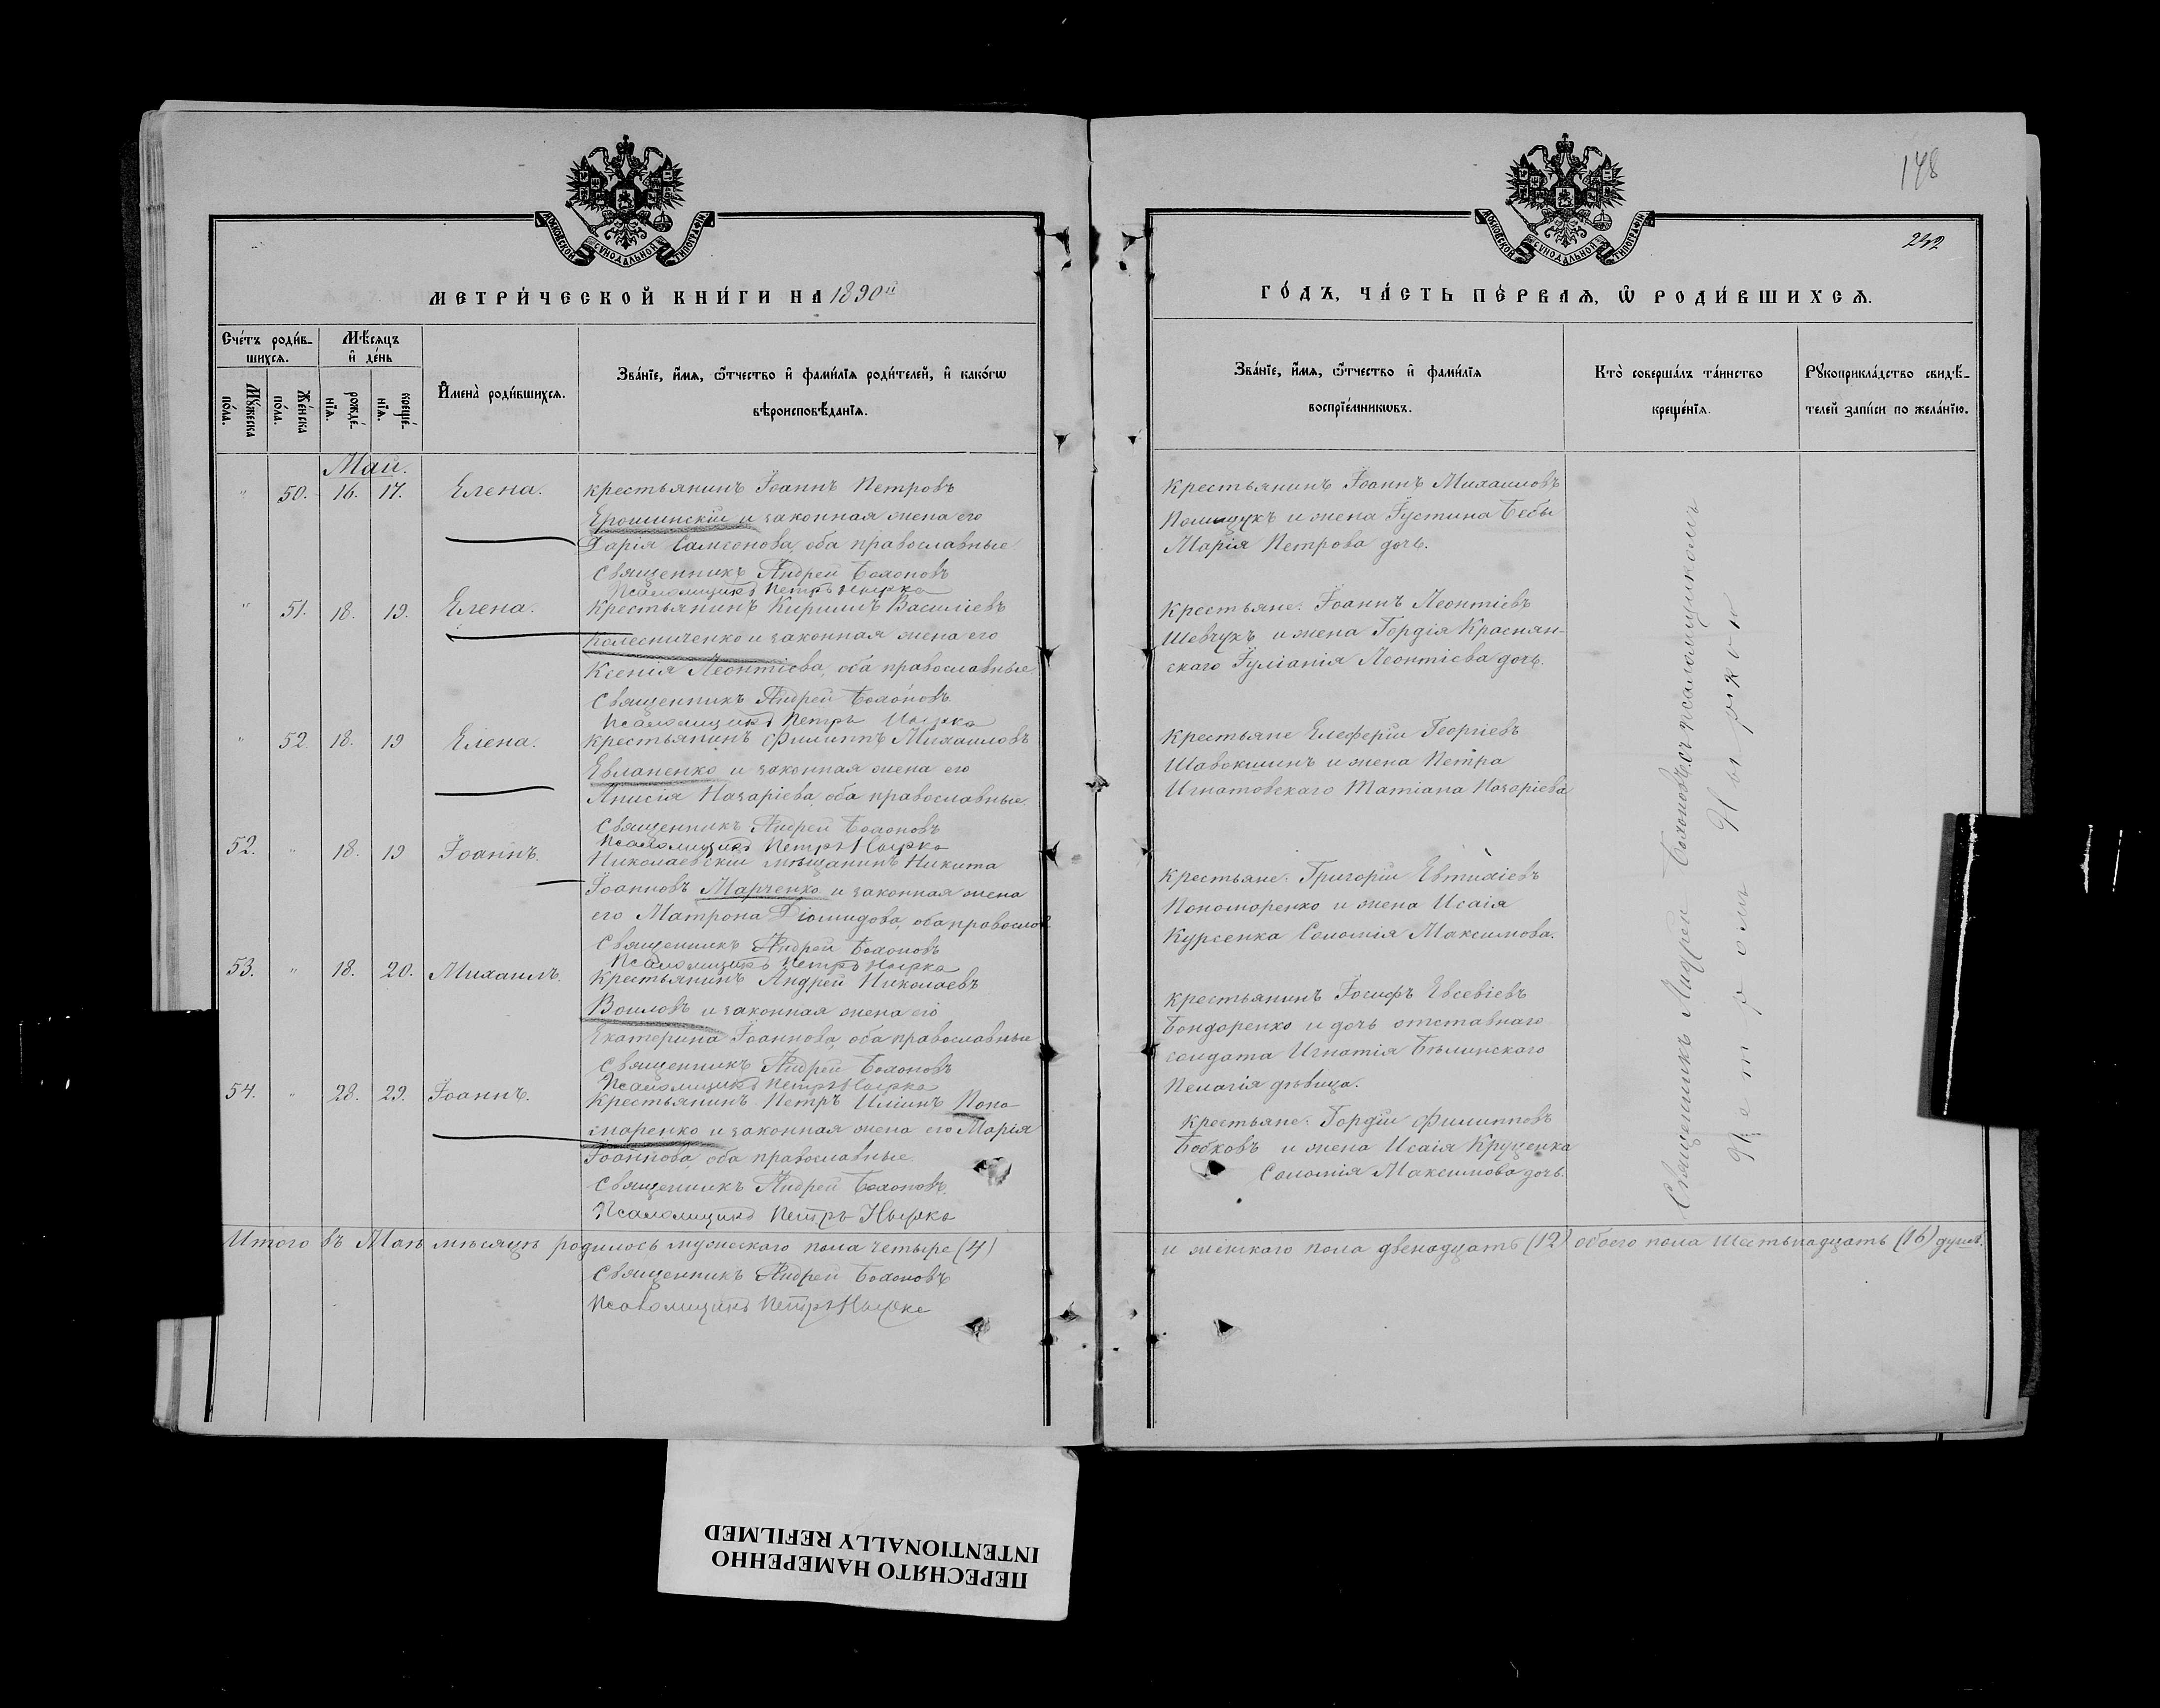 МОСКОВСКОЙ СУНОДАЛЬНОЙ ТИПОГРАФІИ
МЕТРИ́ЧЕСКОЙ КНИ́ГИ НА 1890й
Сче́тъ роди́в-
шихсѧ.
Мѣ́сѧцъ
и҆ де́нь
Мꙋ́жеска
по́ла.
Же́нска
по́ла.
рожде́-
нїѧ.
креще́-
нїѧ.
И҆мена̀ роди́вшихсѧ.
Зва́нїе, и҆́мѧ, ѻ҆́тчество и҆ фами́лїѧ роди́телей, и҆ како́гѡ
вѣроисповѣ́данїѧ.
Май.
" 50. 16. 17. Елена. Крестьянинъ Іоаннъ Петровъ
Ерошинскій и законная жена его
Дарія Самсонова, оба православные
Священникъ Андрей Бохоновъ
Псаломщикъ Петръ
" 51. 18. 19. Елена. Крестьянинъ Кириллъ Василіевъ
Колесниченко и законная жена его
Ксенія Леонтіева, оба православные.
Священникъ Андрей Бохоновъ.
Псаломщикъ Петръ
" 52. 18. 19 Елена. Крестьянинъ Филиппъ Михаиловъ
Евлапенко и законная жена его
Анисія Назаріева оба православные.
Священникъ Андрей Бохоновъ
Псаломщикъ Петръ
52. " 18. 19 Іоаннъ. Николаевскій мѣщанинъ Никита
Іоанновъ Марченко и законная жена
его Матрона Діомидова, оба православ.
Священникъ Андрей Бохоновъ
Псаломщикъ Петръ
53. " 18. 20. Михаилъ. Крестьянинъ Андрей Николаевъ
Воиловъ и законная жена его
Екатерина Іоаннова, оба православные
Священникъ Андрей Бохоновъ
Псаломщикъ Петръ
54. " 28. 29. Іоаннъ. Крестьянинъ Петръ Иліинъ Поно-
маренко и законная жена его Марія
Іоаннова, оба православные.
Священникъ Андрей Бохоновъ.
Псаломщикъ Петръ
Итого въ Маѣ мѣсяцѣ родилось мужескаго пола четыре (4)
Священникъ Андрей Бохоновъ
Псаломщикъ Петръ
148
МОСКОВСКОЙ СУНОДАЛЬНОЙ ТИПОГРАФІИ
242
ГО́ДЪ, ЧА́СТЬ ПЕ́РВАѦ, Ѡ҆ РОДИ́ВШИХСѦ.
Зва́нїе, и҆́мѧ, ѻ҆́тчество и҆ фами́лїѧ
воспрїе́мникѡвъ.
Кто̀ соверша́лъ та́инство
креще́нїѧ.
Рꙋкоприкла́дство свидѣ́-
телей за́писи по жела́нїю.
Крестьянинъ Іоаннъ Михаиловъ
Полищукъ и жена Іустина Бебы
Марія Петрова дочь.
Крестьяне: Іоаннъ Леонтіевъ
Шевчукъ и жена Гордія Краснян-
скаго Іуліанія Леонтіева дочь.
Крестьяне Елеферій Георгіевъ
Шавокшинъ и жена Петра
Игнатовскаго Татіана Назаріева
Крестьяне: Григорій Евтихіевъ
Пономоренко и жена Исаія
Курсенка Соломія Максимова.
Крестьянинъ Іосифъ Евсевіевъ
Бондоренко и дочь отставнаго
солдата Игнатія Бѣлинскаго
Пелагія дѣвица.
Крестьяне: Гордій Филипповъ
Бобковъ и жена Исаія Круценка
Соломія Максимова дочь.
Священникъ Андрей Бохоновъ съ псаломщикомъ
Петромъ
и женскаго пола двенадцать (12) обоего пола шестьнадцать (16) душъ.
ПЕРЕСНЯТО НАМЕРЕННО
INTENTIONALLY REFILMED